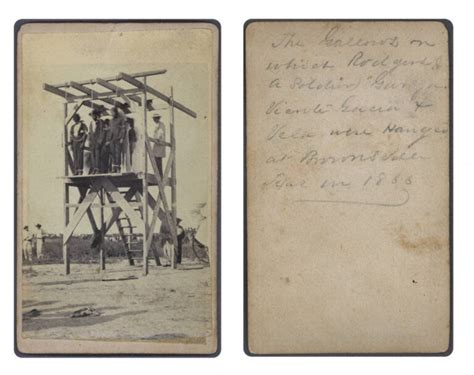 The Gallows on
which Rodgers
a Soldier
Vicente Garcia &
Vela were Hanged
at Brownsville
in 1866